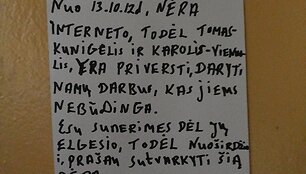 Nuo 13.10.12d, NĖRA
INTERNETO, TODĖL TOMAS-
KUNIGĖLIS IR KAROLIS-VIENUO-
LIS, YRA PRIVERSTI, DARYTI
NAMŲ DARBUS, KAS JIEMS
NEBŪDINGA.
Esu SUNERIMĘS DĖL JŲ
ELGESIO, TODĖL NUOŠIRDŽIA-
i, PRAŠAU SUTVARKYTI ŠIĄ